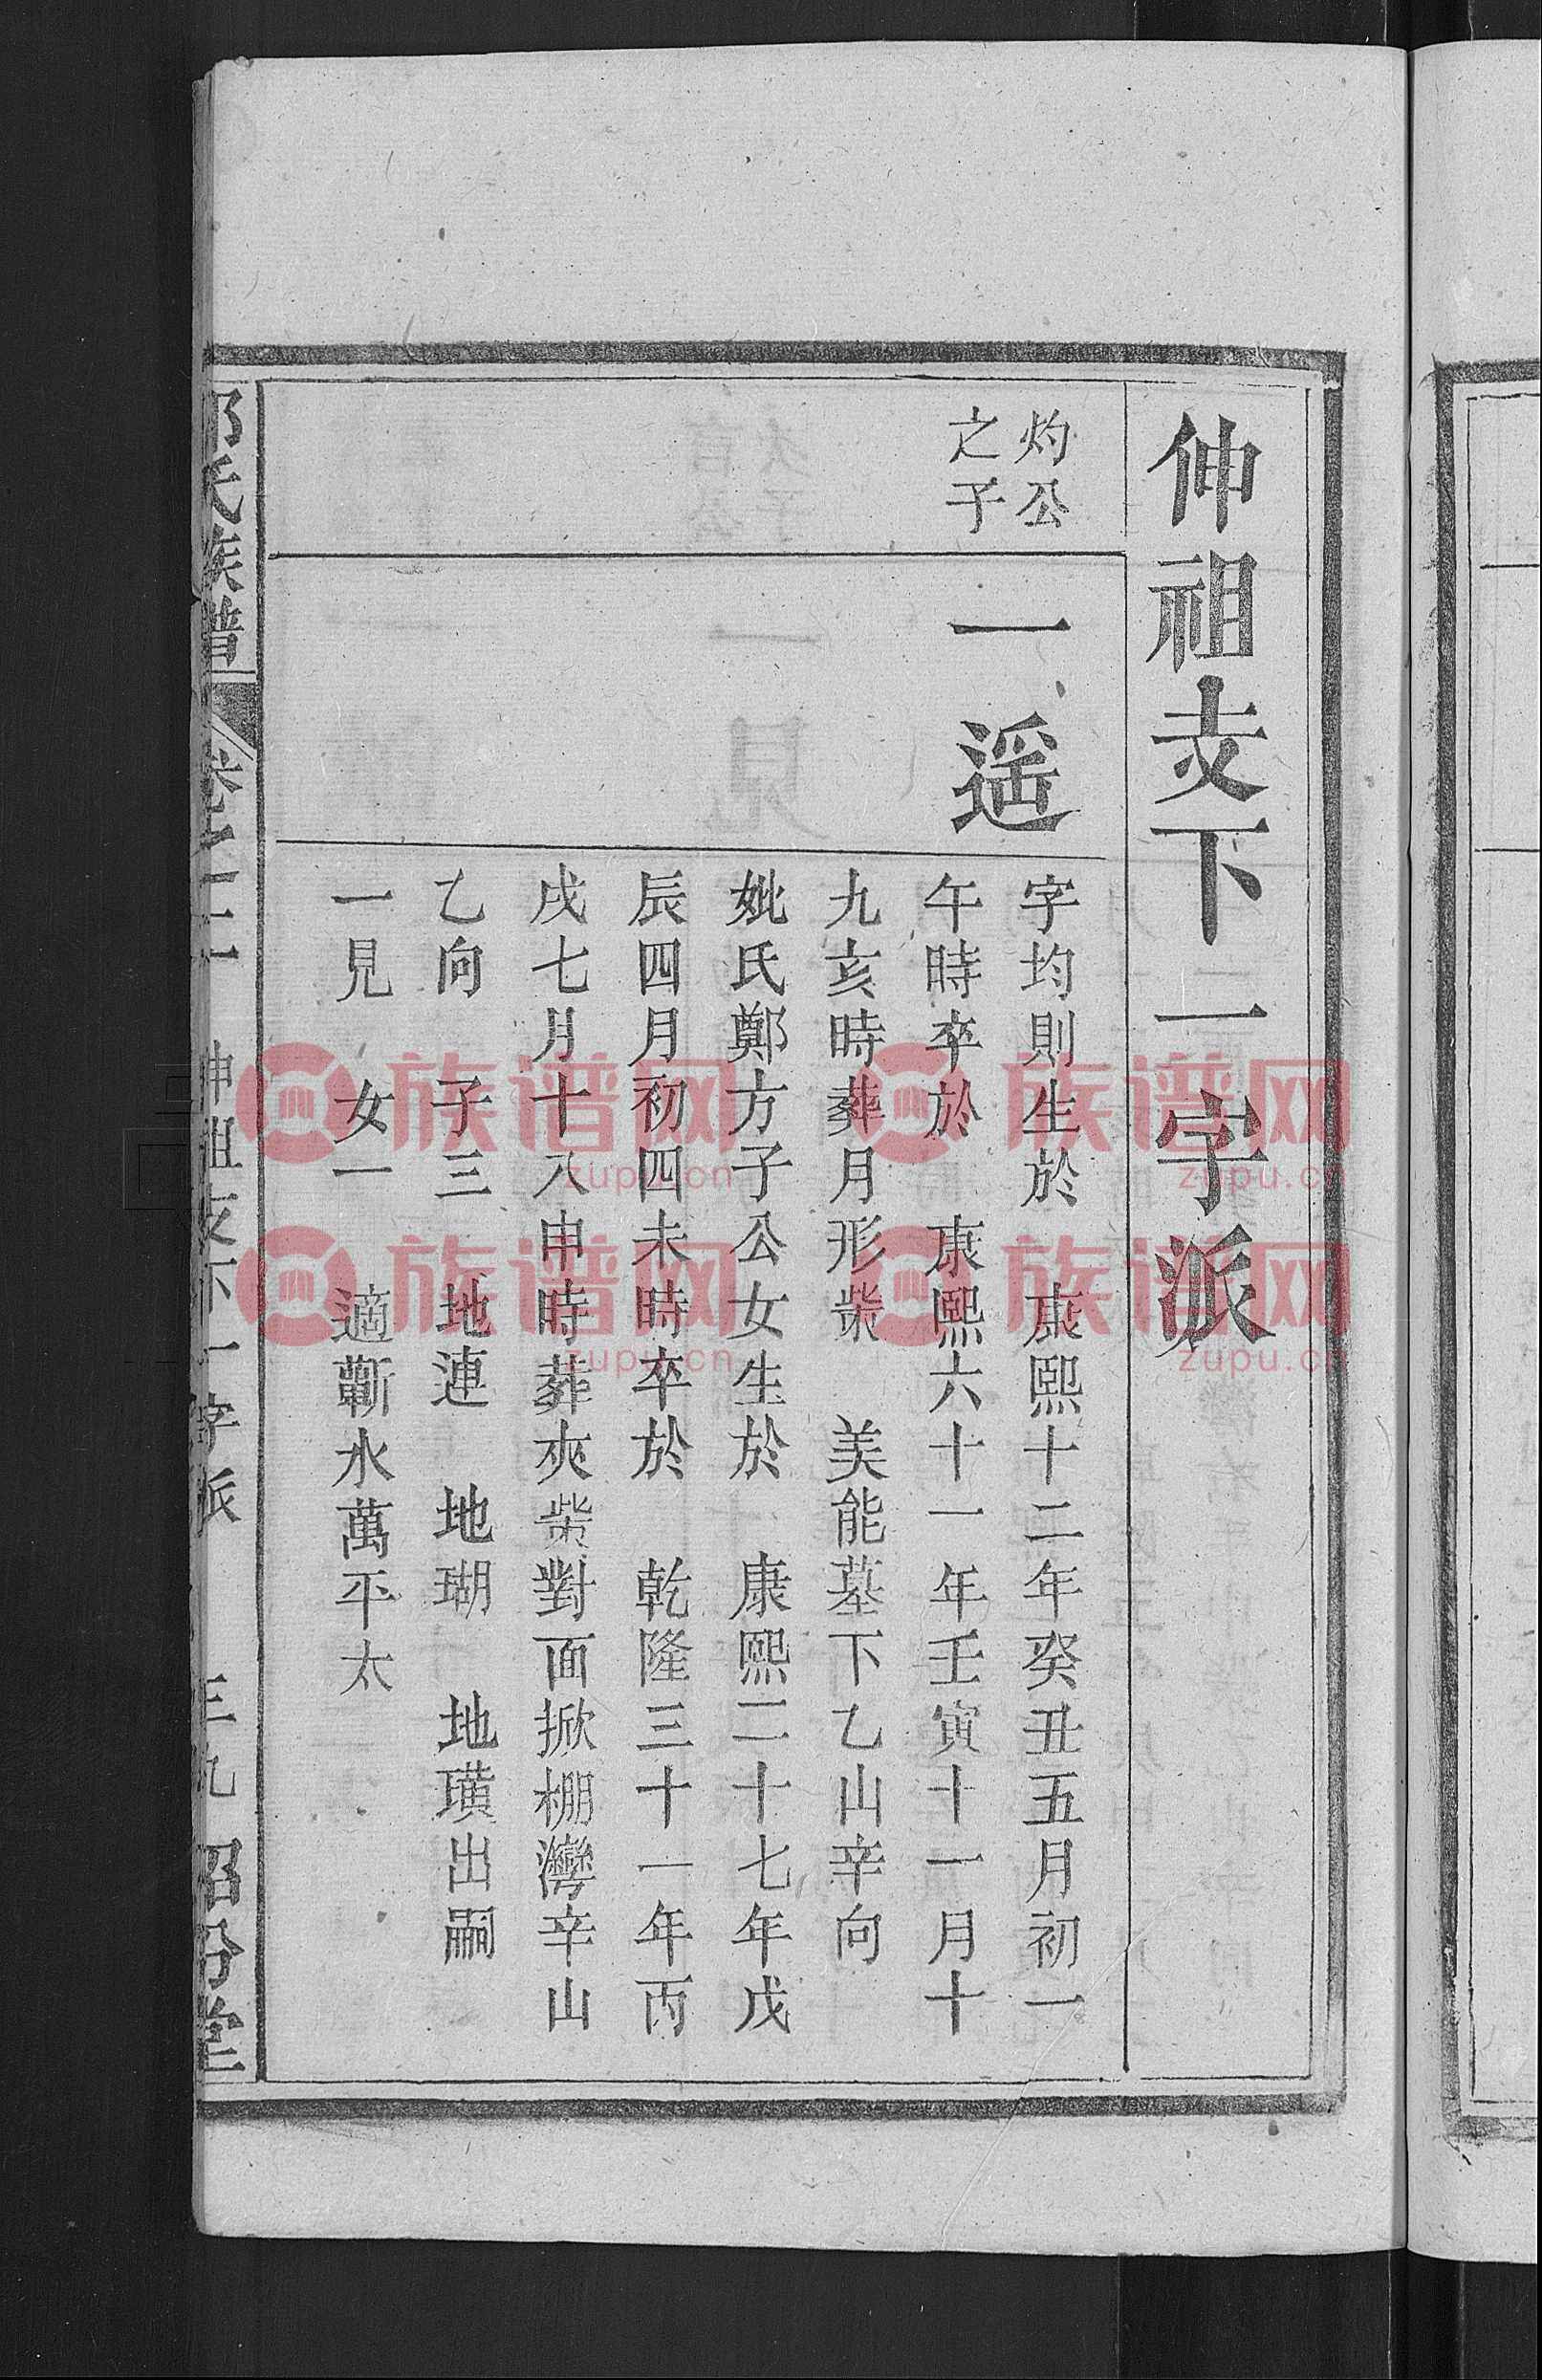 伸祖支下一字派
灼公
之子
一遥
字均則生於 康熙十二年癸丑五月初一
午時卒於 康熙六十一年壬寅十一月十
九亥時葬月形柴 美能墓下乙山辛向
妣氏鄭方子公女生於 康熙二十七年戊
辰四月初四未時卒於 乾隆三十一年丙
戌七月十八申時葬夾柴對面掀棚灣辛山
乙向 子三 地連 地瑚 地璜出嗣
一見 女一 適蘄水萬平太
氏族譜 卷二 伸祖支下一字派 三九
族谱网
zupu.cn
族谱网
zupu.cn
族谱网
zupu.cn
族谱网
zupu.cn